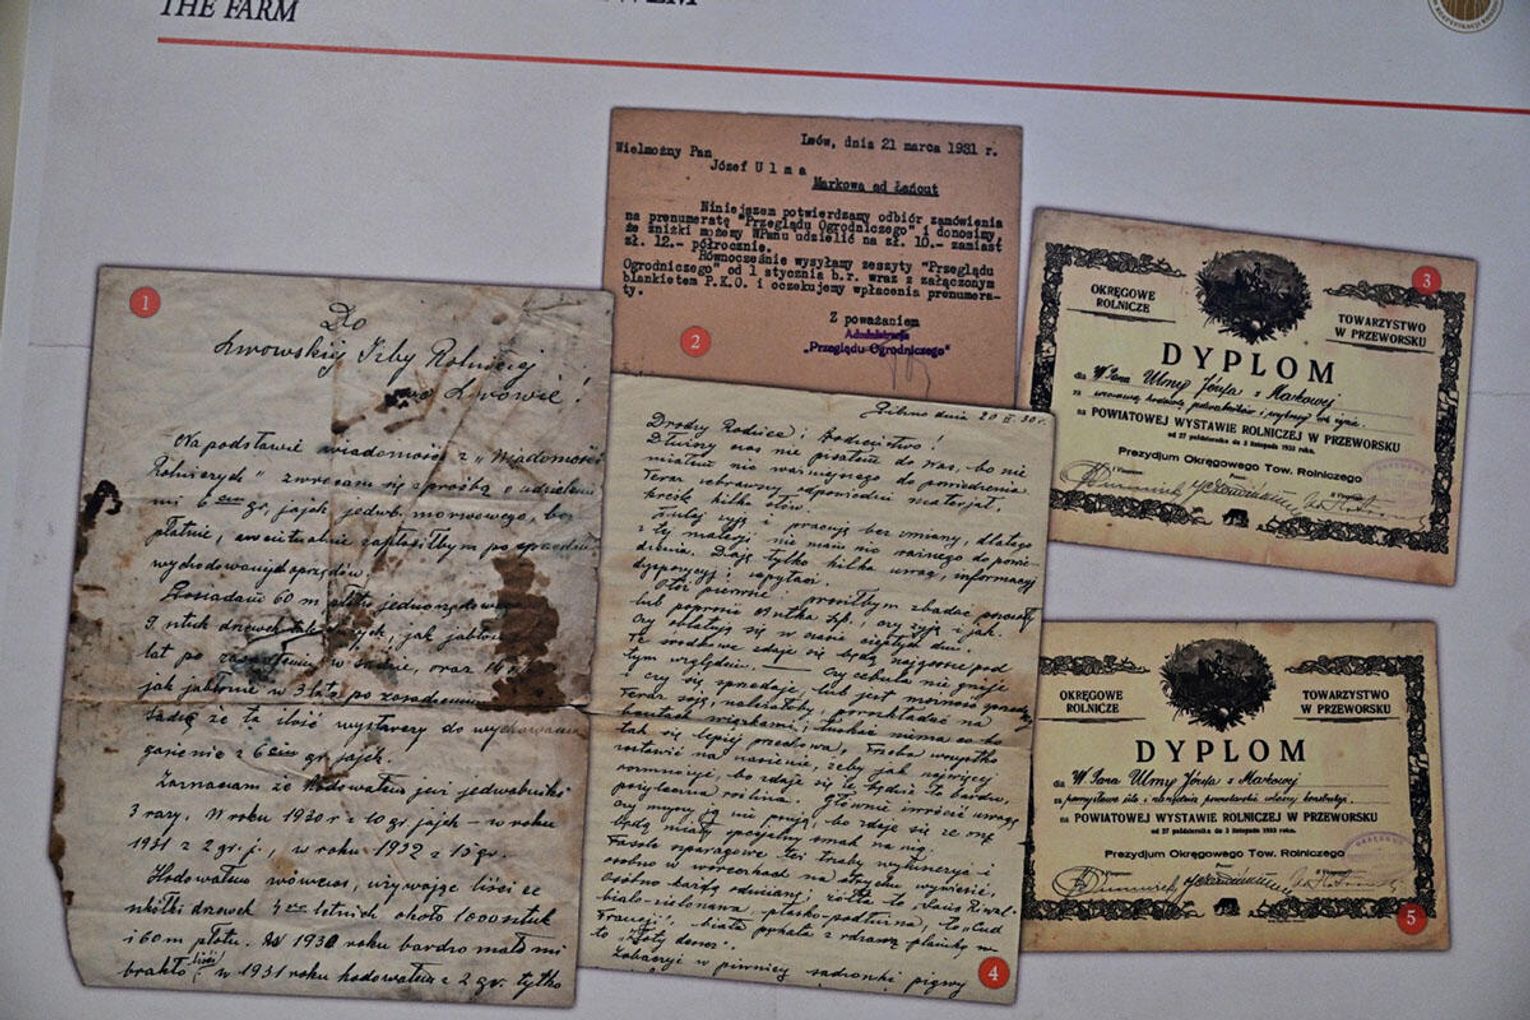 THE FARM
1
Do
Lwowskiej Izby Rolniczej
we Lwowie!
Na podstawie wiadomości z "Wiadomości
Rolniczych" zwracam się z prośbą o udzieleni
mi 6 gr. jajek jedwb. morwowego, bez
płatnie, ewentualnie zapłaciłbym po
wychodowanych oprzędów.
Posiadam 60 m płotu jednorzędowego
9 sztuk drzewek jak
lat po w sadzie, oraz
jak jabłonie w 3 lata po zasadzeniu
Sądzę że ta ilość wystarczy do wychowania
gąsienic z 6 gr. jajek.
Zaznaczam że hodowałem już jedwabniki
3 razy. W roku 1930 r z 10 gr. jajek – w roku
1931 z 2 gr. j., w roku 1932 z 15 gr.
Hodowałem wówczas, używając liści ze
szkółki drzewek letnich około 1000 sztuk
i 60 m płotu. W 1930 roku bardzo mało mi
brakło liści w 1931 roku hodowałem z 2 gr. tylko
Lwów, dnia 21 marca 1931 r.
Wielmożny Pan
Józef U l m a
Markowa ad Łańcut
Niniejszem potwierdzamy odbiór zamówienia
na prenumeratę "Przeglądu Ogrodniczego" i donosimy,
że zniżki możemy WPanu udzielić na zł. 10.- zamiast
zł. 12.- półrocznie.
Równocześnie wysyłamy zeszyty "Przeglądu
Ogrodniczego" od 1 stycznia b.r. wraz z załączonym
blankietem P.K.O. i oczekujemy wpłacenia prenumera-
ty.
Z poważaniem
Administracja
„Przeglądu Ogrodniczego"
2
Pilzno dnia 20 30 r.
Drodzy Rodzice i Rodzeństwo!
Dłuższy czas nie pisałem do Was, bo nie
miałem nic ważniejszego do powiedzenia
Teraz zebrawszy odpowiedni materjał,
kreślę kilka słów.
Tutaj żyją i pracują bez zmiany, dlatego
z tej materji nie mam nic ważnego do powie-
dzenia. Daję tylko kilka uwag, informacyj
dyspozycyj i zapytań.
Otóż pierwsze: prosiłbym zbadać pszczoły
lub poprosić Antka Sz., czy żyją i jak.
Czy oblatują się w czasie ciepłych dni.
Te środkowe zdaje się będą najgorsze pod
tym względem. — Czy cebula nie gnije
i czy się sprzedaje, lub jest możność sprzedaży
Teraz soją, należałoby, porozkładać na
tak się lepiej przechowa, Trzeba wszystko
zostawić na nasienie, żeby jak najwięcej
rozmnożyć, bo zdaje się że będzie to bardzo
pożyteczna roślina. Głównie zwrócić uwagę
czy myszy ją nie psują, bo zdaje się że one
będą miały specjalny smak na nią.
Fasole szparagowe też trzeba wyłuszczyć i
osobno w woreczkach na strychu wywiesić.
Osobno każdą odmianę; żółta to
biało-zielonawa płasko-podłużna, to „Cud
Francji", biała pękata z rdzawą plamką
to „Złoty deszcz".
Zobaczyć w piwnicy sadzonki pigwy
4
3
OKRĘGOWE
ROLNICZE
TOWARZYSTWO
W PRZEWORSKU
DYPLOM
dla W Pana Ulmy Józefa z Markowej
za wzorową hodowlę jedwabników i wykresy ich życia.
na POWIATOWEJ WYSTAWIE ROLNICZEJ W PRZEWORSKU
od 27 października do 3 listopada 1933 roku.
Prezydjum Okręgowego Tow. Rolniczego
OKRĘGOWE
ROLNICZE
TOWARZYSTWO
W PRZEWORSKU
DYPLOM
dla W Pana Ulmy Józefa z Markowej
za pomysłowe ule i narzędzia pszczelarskie własnej konstrukcji.
na POWIATOWEJ WYSTAWIE ROLNICZEJ W PRZEWORSKU
od 27 października do 3 listopada 1933 roku.
Prezydjum Okręgowego Tow. Rolniczego
5